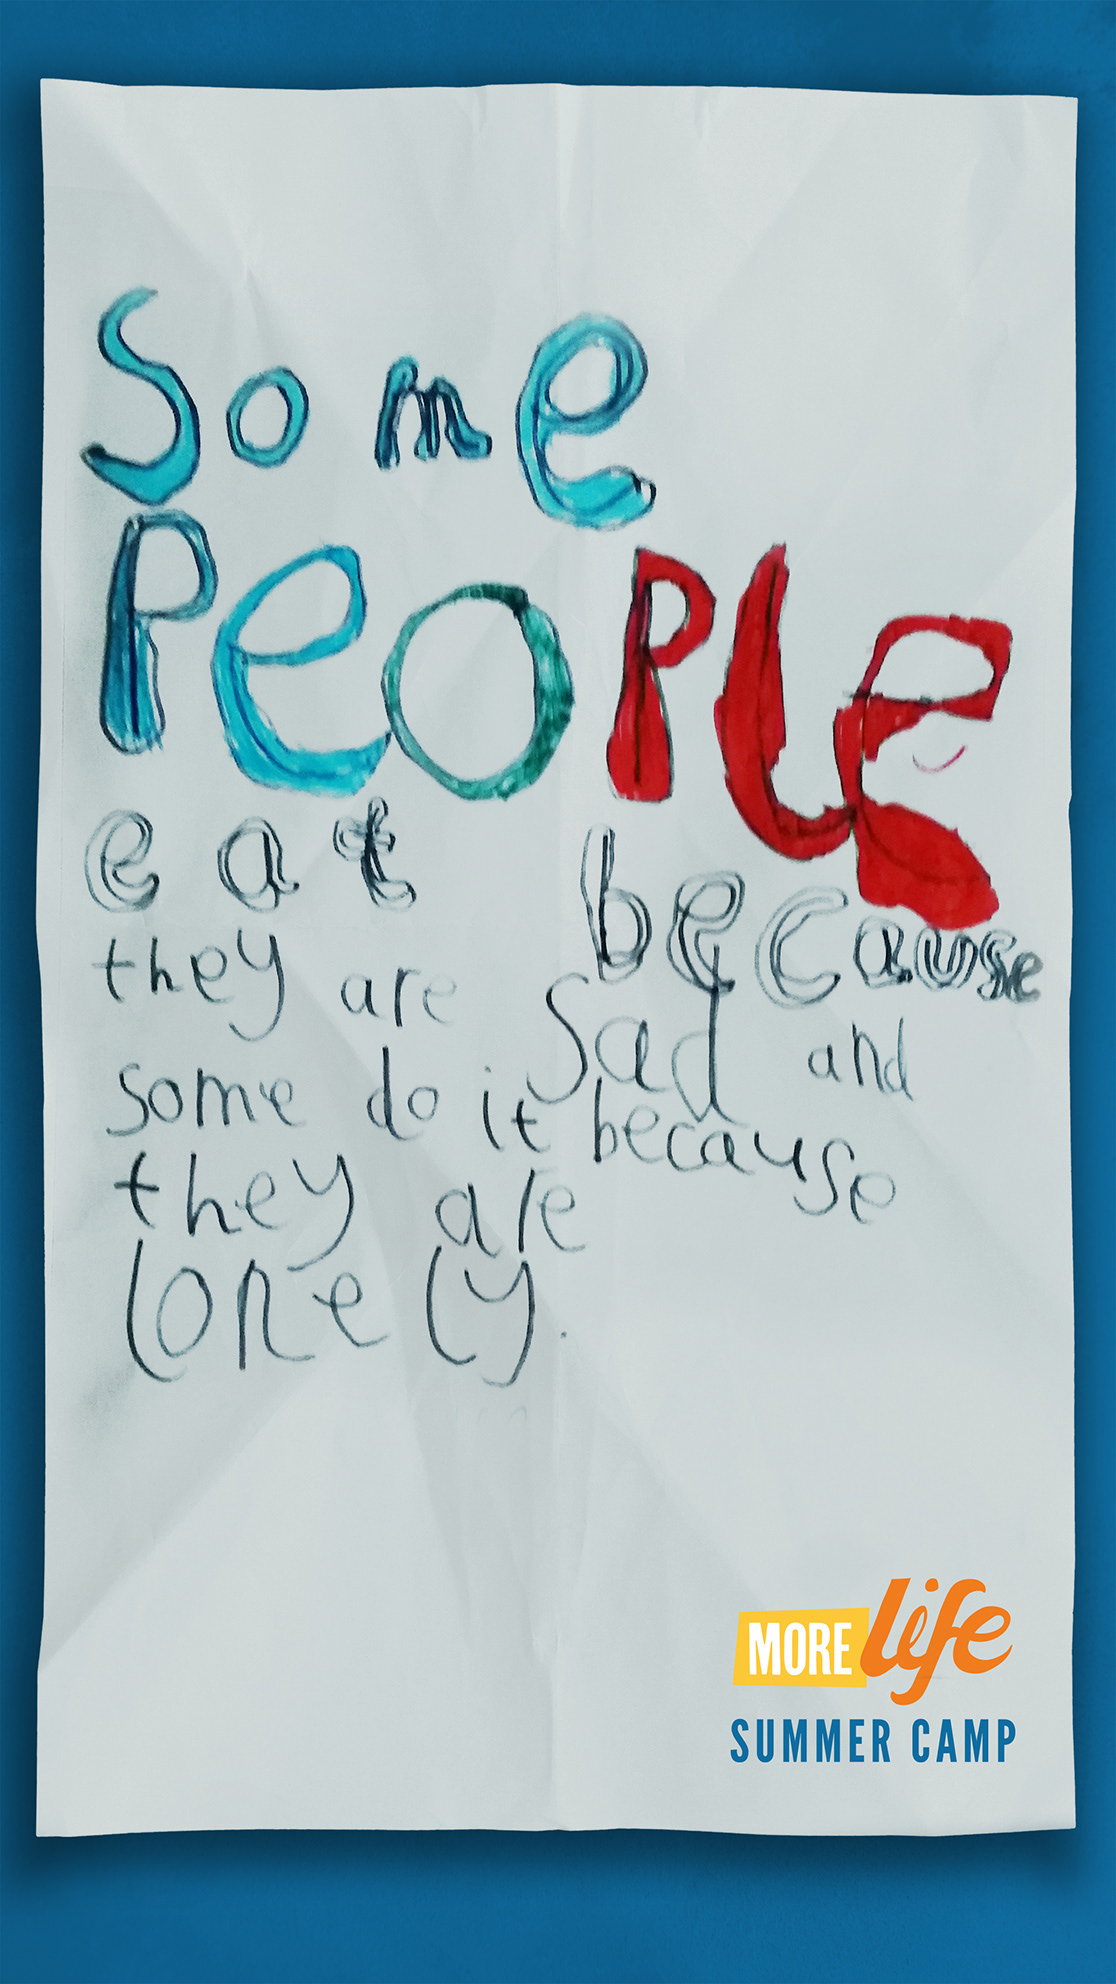 Some
PeoPle
eat because
they are sad and
some do it because
they are
lonely.
MORE life
SUMMER CAMP